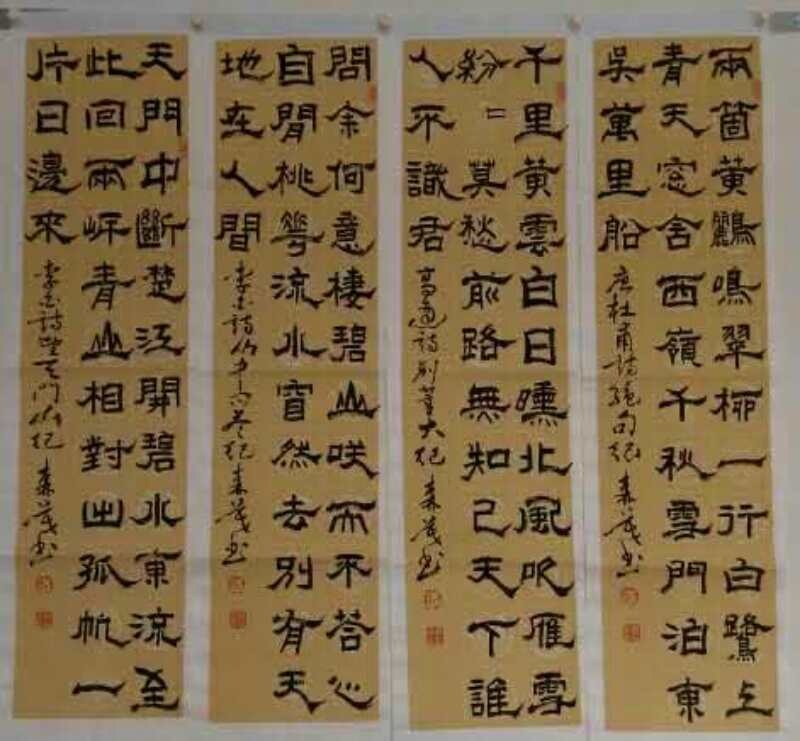 兩箇黃鸝鳴翠柳一行白鷺上
青天窓含西嶺千秋雪門泊東
吳萬里船 唐杜甫詩絕句紀 森茂書
千里黃雲白日曛北風吹雁雪
紛〻莫愁前路無知己天下誰
人不識君 高適詩別董大紀 森茂書
問余何意棲碧山咲而不荅心
自閒桃花流水窅然去別有天
地在人間 李白詩山中問答紀 森茂書
天門中斷楚江開碧水東流至
此回兩岸青山相對出孤帆一
片日邊來 李白詩望天門山紀 森茂書